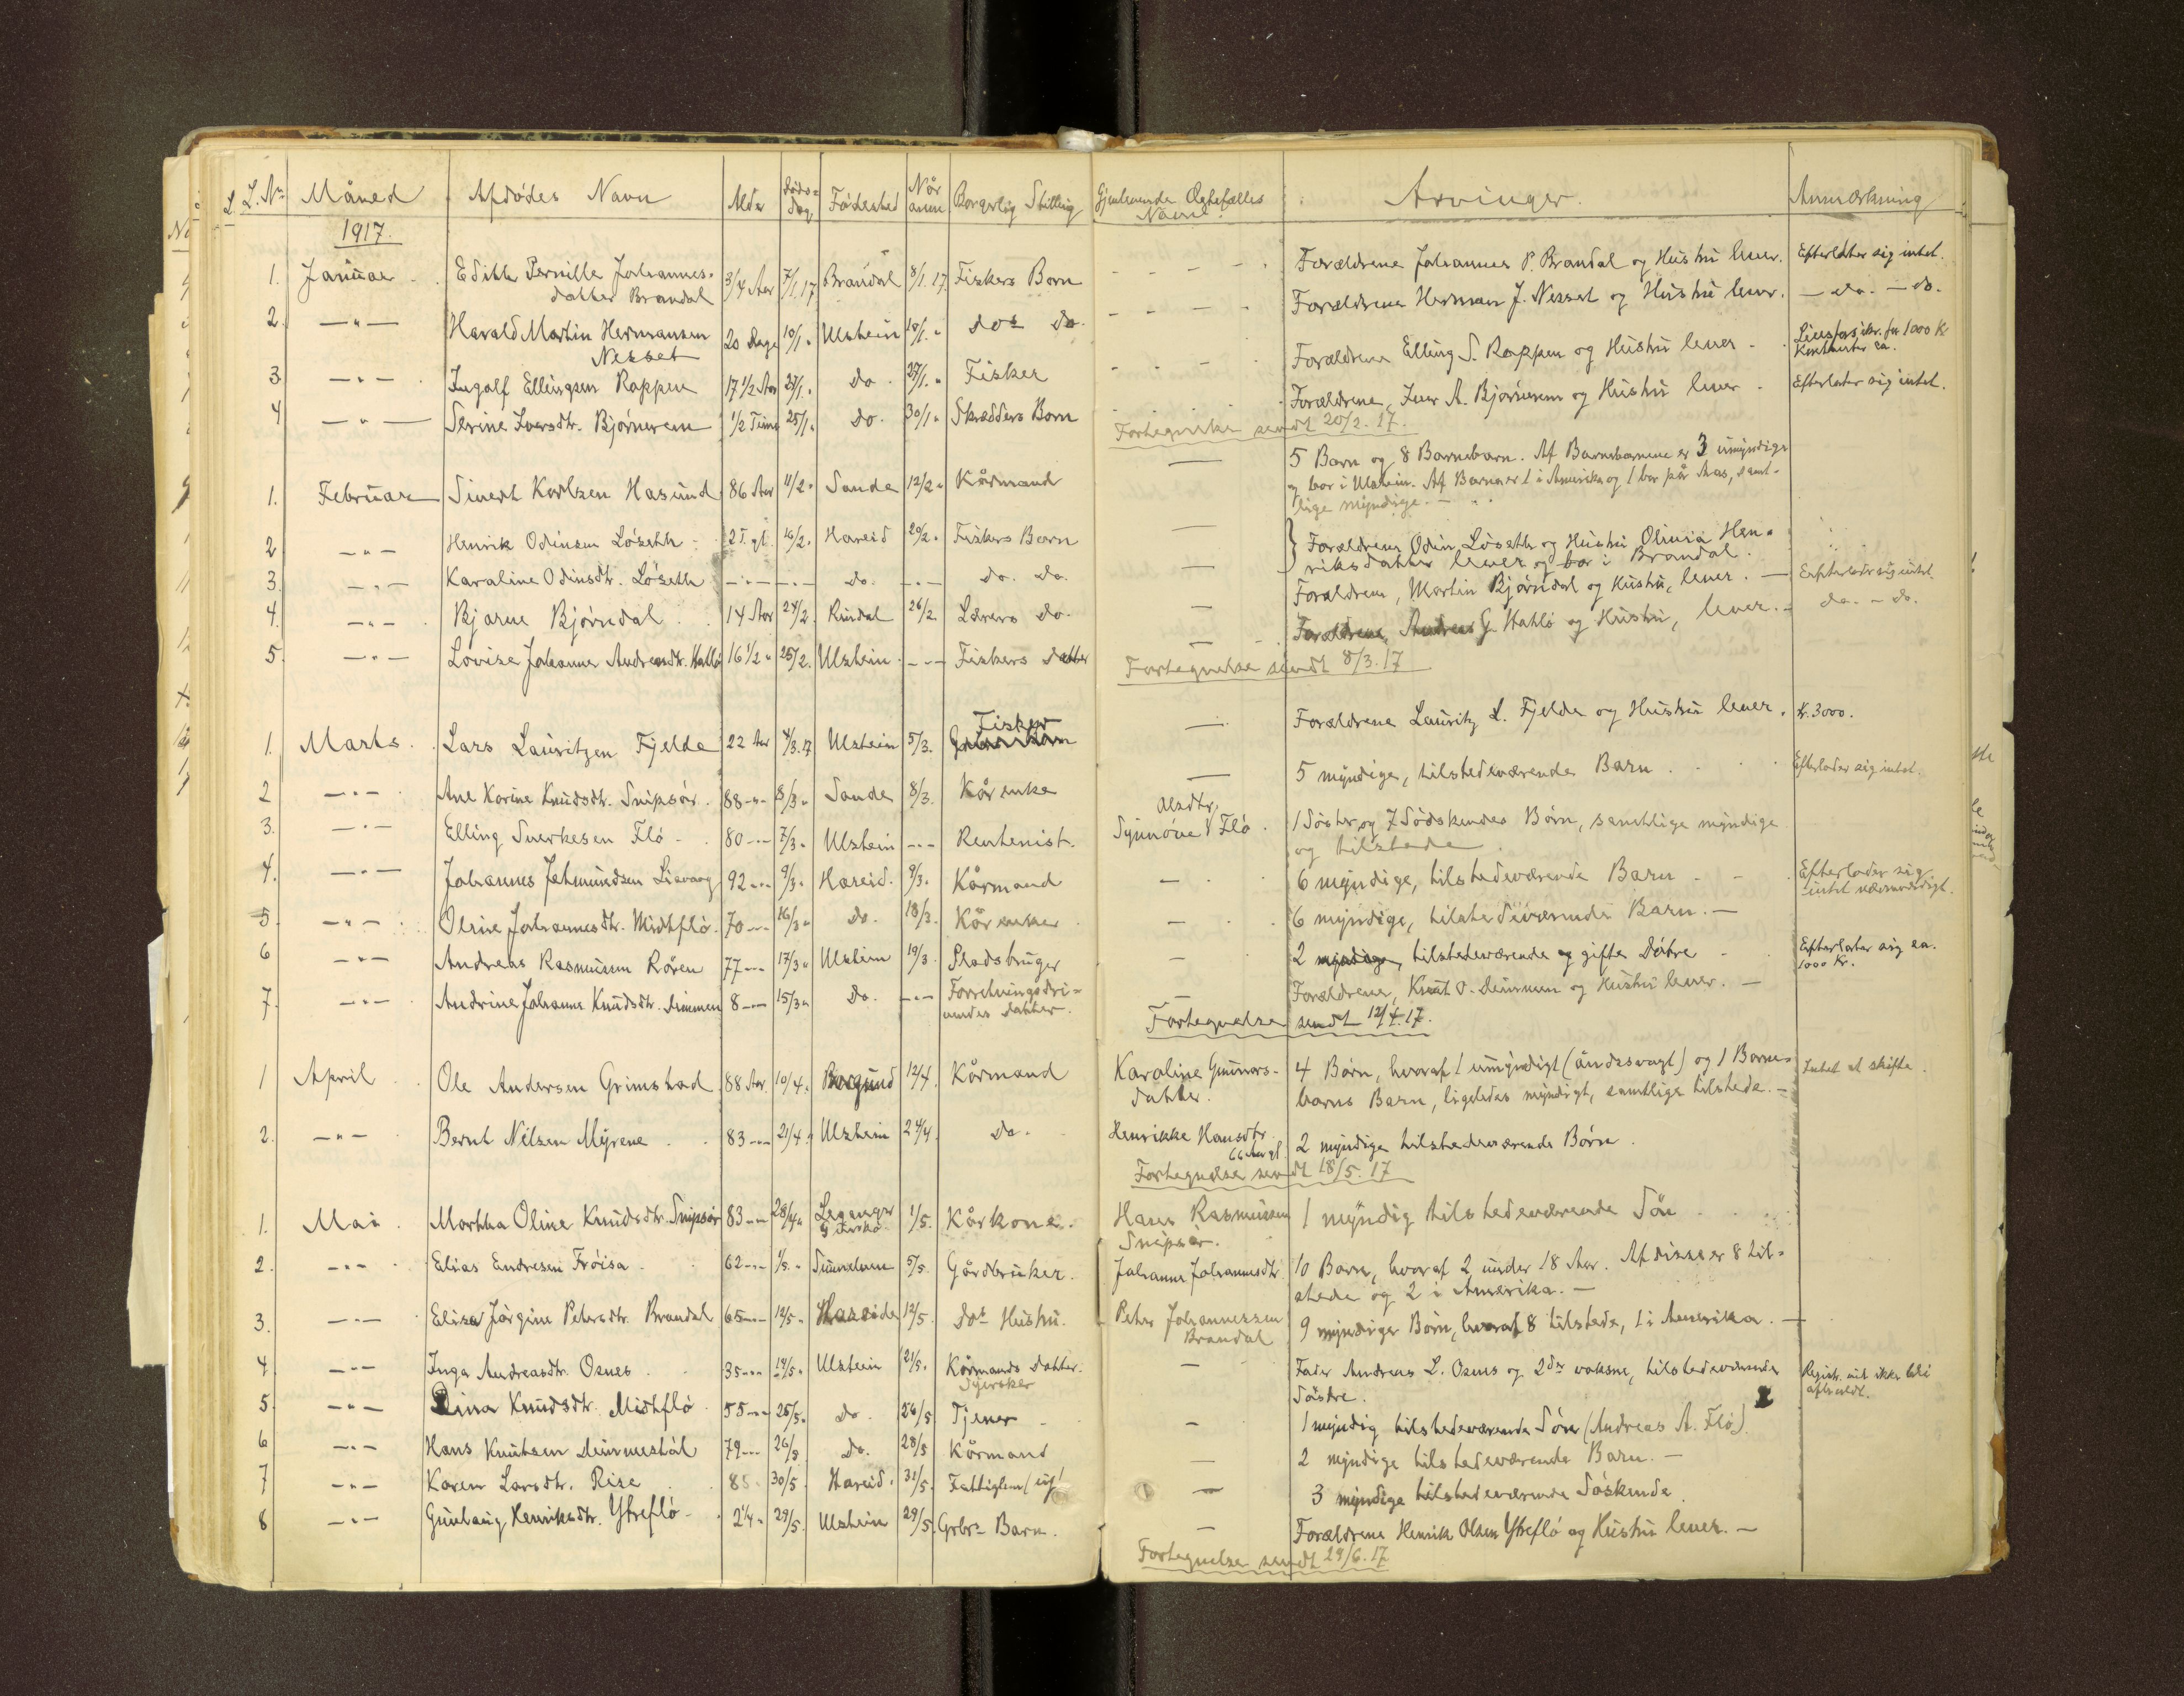 L. Nr. Måned Afdödes Navn Alder Döds=dag Födested Når anm. Borgerlig Stilling Gjenlevende Ægtefælles Navn Arvinger. Anmærkning
1917.
1. Januar Edith Pernille Johannes= 3/4 Aar 7/1.17 Brandal 8/1.17 Fiskers Barn - - - - Forældrene Johannes P. Brandal og Hustru lever. Efterlater sig intet.
datter Brandal
2. -"- Harald Martin Hermansen 20 Dage 10/1 " Ulstein 18/1. " dos do. - - - - Forældrene Herman J. Nesset og Hustru lever. - do. - do.
Nesset
3 -"- Ingolf Ellingsen Rappen 17 1/2 Aar 21/1. " do. 27/1. " Fisker - - - Forældrene Elling S. Rappen og Hustru lever - Livsforsikr. for 1000 Kr
Kontanter ca.
4 -"- Serine Iversdtr. Bjørnerem 1/2 Time 25/1 " do. 30/1 " Skrædders Barn - - - - Forældrene, Iver A. Bjørnerem og Hustru lever - Efterlater sig intet.
Fortegnelse sendt 20/2. 17.
1. Februar Sivert Karlsen Hasund 86 Aar 11/2 " Sande 12/2 " Kårmand — 5 Barn og 8 Barnebarn. Af Barnebarnene er 3 umyndige
og bor i Ulstein. Af Barna er 1 i Amerika og 1 bor på Aas, samt-
lige myndige. -
2 -"- Henrik Odinsen Löseth 2 T. gl. 16/2 " Hareid 20/2 " Fiskers Barn — } Forældrene Odin Löseth og Hustru Olivia Hen=
3. -"- Karoline Odinsdtr. Löseth -"- -"- do. -"- do. do. — riksdatter lever og bor i Brandal.
4. -"- Bjarne Bjørndal 14 Aar 24/2. Rindal 26/2. Lærers do. — Forældrene, Martin Bjørndal og Hustru, lever. - Efterlader sig intet.
5. -"- Lovise Johanne Andreasdtr. Hatlö 16 1/2 " 25/2. Ulstein -"- Fiskers Datter — Forældrene, Andreas G. Hatlö og Hustru, lever. - do. - do.
Fortegnelse sendt 8/3. 17
1. Marts. Lars Lauritzen Fjelde 22 Aar 4/3.17 Ulstein 5/3. Fisker — Forældrene Lauritz L. Fjelde og Hustru lever. Kr. 3000.
2 -"- Ane Karine Knudsdtr. Snipsör. 88 -"- 8/3 " Sande 8/3. Kårenke — 5 myndige, tilstedeværende Barn. Efterlader sig intet.
3. -"- Elling Sverkesen Flö - 80 -"- 7/3 " Ulstein -"- Rentenist. Synnöve Olsdtr. Flö. 1 Söster og 7 Södskendes Börn, samtlige myndige
og tilstede.
4. -"- Johannes Johnundsen Liavaag 92 -"- 9/3 " Hareid. 9/3. Kårmand — 6 myndige, tilstedeværende Barn - Efterlader sig
intet nævneværdigt.
5. -"- Oline Johannesdtr. Midtflö. 70 -"- 16/3 " do. 18/3. Kårenke — 6 myndige, tilstedeværende Barn. -
6 -"- Andreas Rasmussen Rören 77 -"- 17/3 " Ulstein 19/3. Pladsbruger — 2 myndige, tilstedeværende og gifte Dötre - Efterlater sig ca.
1000 Kr.
7. -"- Andrine Johanne Knudsdtr. Dimmen 8 -"- 15/3 " Do. -"- Forretningsdri= — Forældrene, Knut O. Deimmen og Hustru lever. -
vendes datter.
Fortegnelse sendt 12/4. 17.
1 April Ole Andersen Grimstad 88 Aar. 10/4. Borgund 12/4. Kårmand Karoline Gunnars- 4 Börn, hvoraf 1 umyndigt (åndssvagt) og 1 Barne= Intet at skifte.
datter. barns Barn, ligeledes myndigt, samtlige tilstede. -
2. -"- Bernt Nilsen Myrene 83 -"- 21/4. " Ulstein 24/4. Do. Henrikke Hansdtr. 2 myndige tilstedeværende Börn.
66 Aar gl.
Fortegnelse sendt 18/5. 17
1. Mai. Martha Oline Knudsdtr. Snipsör 83 -"- 28/4 " Leganger 1/5. Kårkone. Hans Rasmussen 1 myndig tilstedeværende Sön
Snipsör.
2. -"- Elias Endresen Fröisa 62 -"- 1/5. " Sunnelven 5/5. Gårdbruker. Johanne Johannesdtr. 10 Barn, hvoraf 2 under 18 Aar. Af disse er 8 til=
stede og 2 i Amerika. -
3. -"- Elisa Jörgine Petersdtr. Brandal 65 -"- 12/5 " Hareide 12/5. Dos Hustru. Peter Johannessen 9 myndige Börn, hvoraf 8 tilstede, 1 i Amerika. -
Brandal
4. -"- Inga Andreasdtr. Osnes 35 -"- 19/5 " Ulstein 21/5. Kårmands datter. — Fader Andreas L. Osnes og 2de voksne, tilstedeværende Registr. vil ikke bli
Syerske Söstre. afholdt.
5 -"- Lina Knudsdtr. Midtflö 55 -"- 25/5. do 26/5 Tjener - 1 myndig tilstedeværende Sön (Andreas A. Flö).
6 -"- Hans Knutsen Deimmestøl 79 -"- 26/5 do. 28/5 Kårmand — 2 myndige tilstedeværende Barn. -
7 -"- Karen Larsdtr. Rise 85 30/5. Hareid. 31/5. Fattiglem/ugf. — 3 myndige tilstedeværende Söskende.
8 -"- Gunlaug Henriksdtr. Ytreflö 2 1/4 " 29/5. Ulstein 29/5. Grbrs Barn. — Forældrene Henrik Olsen Ytreflö og Hustru lever. -
Fortegnelse sendt 29/6. 17